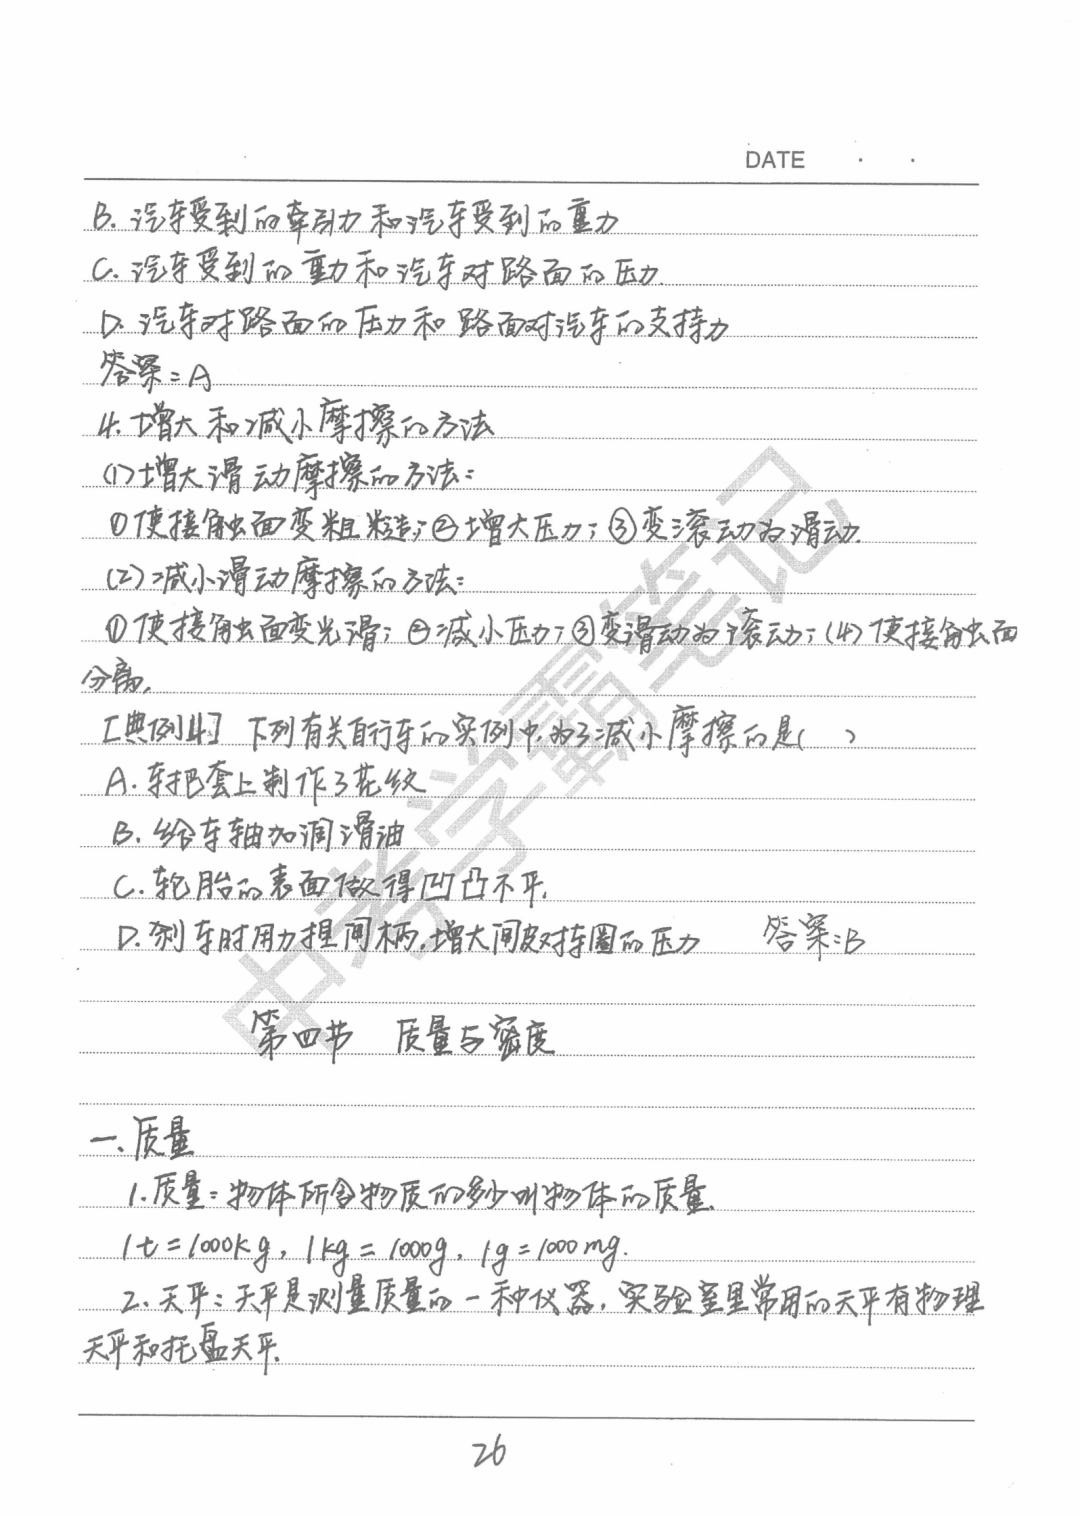 DATE
B. 汽车受到的牵引力和汽车受到的重力
C. 汽车受到的重力和汽车对路面的压力.
D. 汽车对路面的压力和路面对汽车的支持力
答案:A
4. 增大和减小摩擦的方法
(1)增大滑动摩擦的方法:
①使接触面变粗糙;②增大压力;③变滚动为滑动.
(2)减小滑动摩擦的方法:
①使接触面变光滑;②减小压力;③变滑动为滚动;(4)使接触面
分离.
[典例4] 下列有关自行车的实例中,为了减小摩擦的是( )
A. 车把套上制作了花纹
B. 给车轴加润滑油
C. 轮胎的表面做得凹凸不平.
D. 刹车时用力捏闸柄,增大闸皮对车圈的压力 答案:B
第四节 质量与密度
一、质量
1. 质量:物体所含物质的多少叫物体的质量.
1t=1000kg, 1kg=1000g, 1g=1000mg.
2. 天平:天平是测量质量的一种仪器,实验室里常用的天平有物理
天平和托盘天平.
26
中考学霸笔记